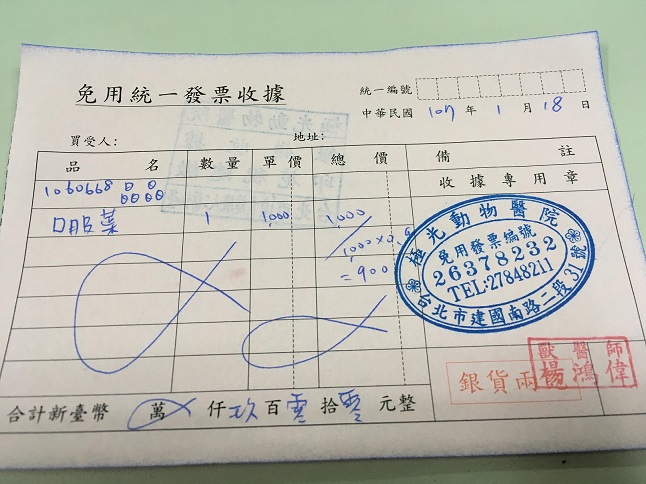 免用統一發票收據
統一編號
中華民國 107 年 1 月 18 日
買受人： 地址：
品 名 數量 單價 總 價 備 註
1060668
口服藥 1 1,000 1,000
1,000×0.9
=900
收據專用章
極光動物醫院
免用發票編號
26378232
TEL:27848211
台北市建國南路二段31號
獸醫師
楊鴻偉
銀貨兩
合計新臺幣 萬 仟 玖 百 零 拾 零 元整